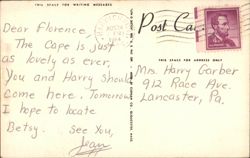 THIS SPACE FOR WRITING MESSAGES
Post Car
THIS SPACE FOR ADDRESS ONLY
Dear Florence,
The Cape is just
as lovely as ever,
You and Harry should
come here. Tomorrow
I hope to locate
Betsy. See You,
Jean
Mrs. Harry Garber
912 Race Ave.
Lancaster, Pa.